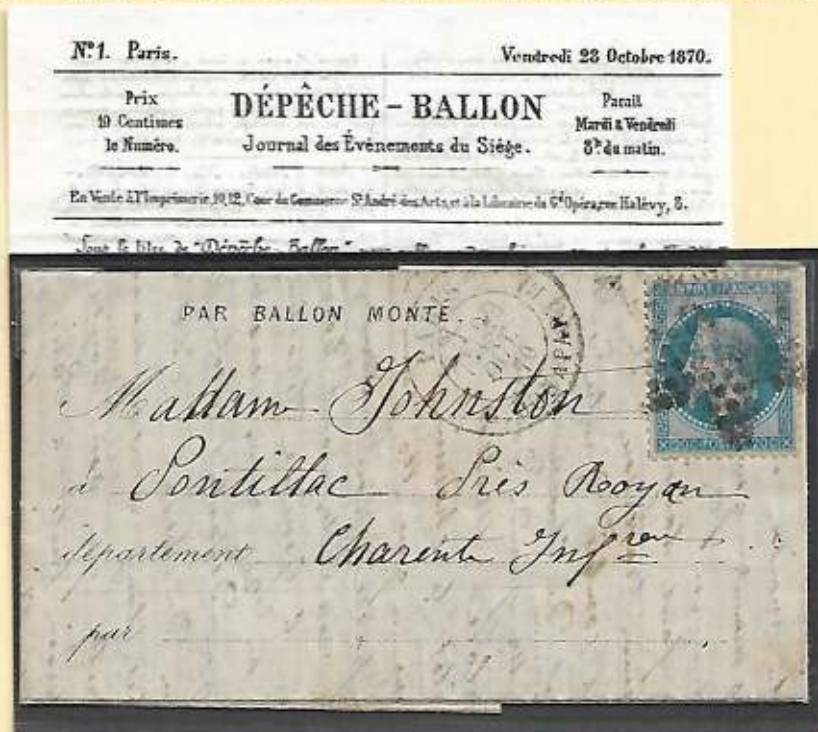 N° 1. Paris.
Vendredi 28 Octobre 1870.
Prix
10 Centimes
le Numéro.
DÉPÊCHE - BALLON
Journal des Évènements du Siège.
Parait
Mardi & Vendredi
8h du matin.
En Vente à l'Imprimerie, 10, 12, Cour du Commerce St André des Arts, et à la Librairie du Gd Opéra, rue Halévy, 8.
Sous le titre de "Dépêche-Ballon"
PAR BALLON MONTÉ.
EMPIRE FRANÇAIS
20 C POSTES 20 C
Madam Johnston
à Pontillac Près Royan
département Charente Infre
par